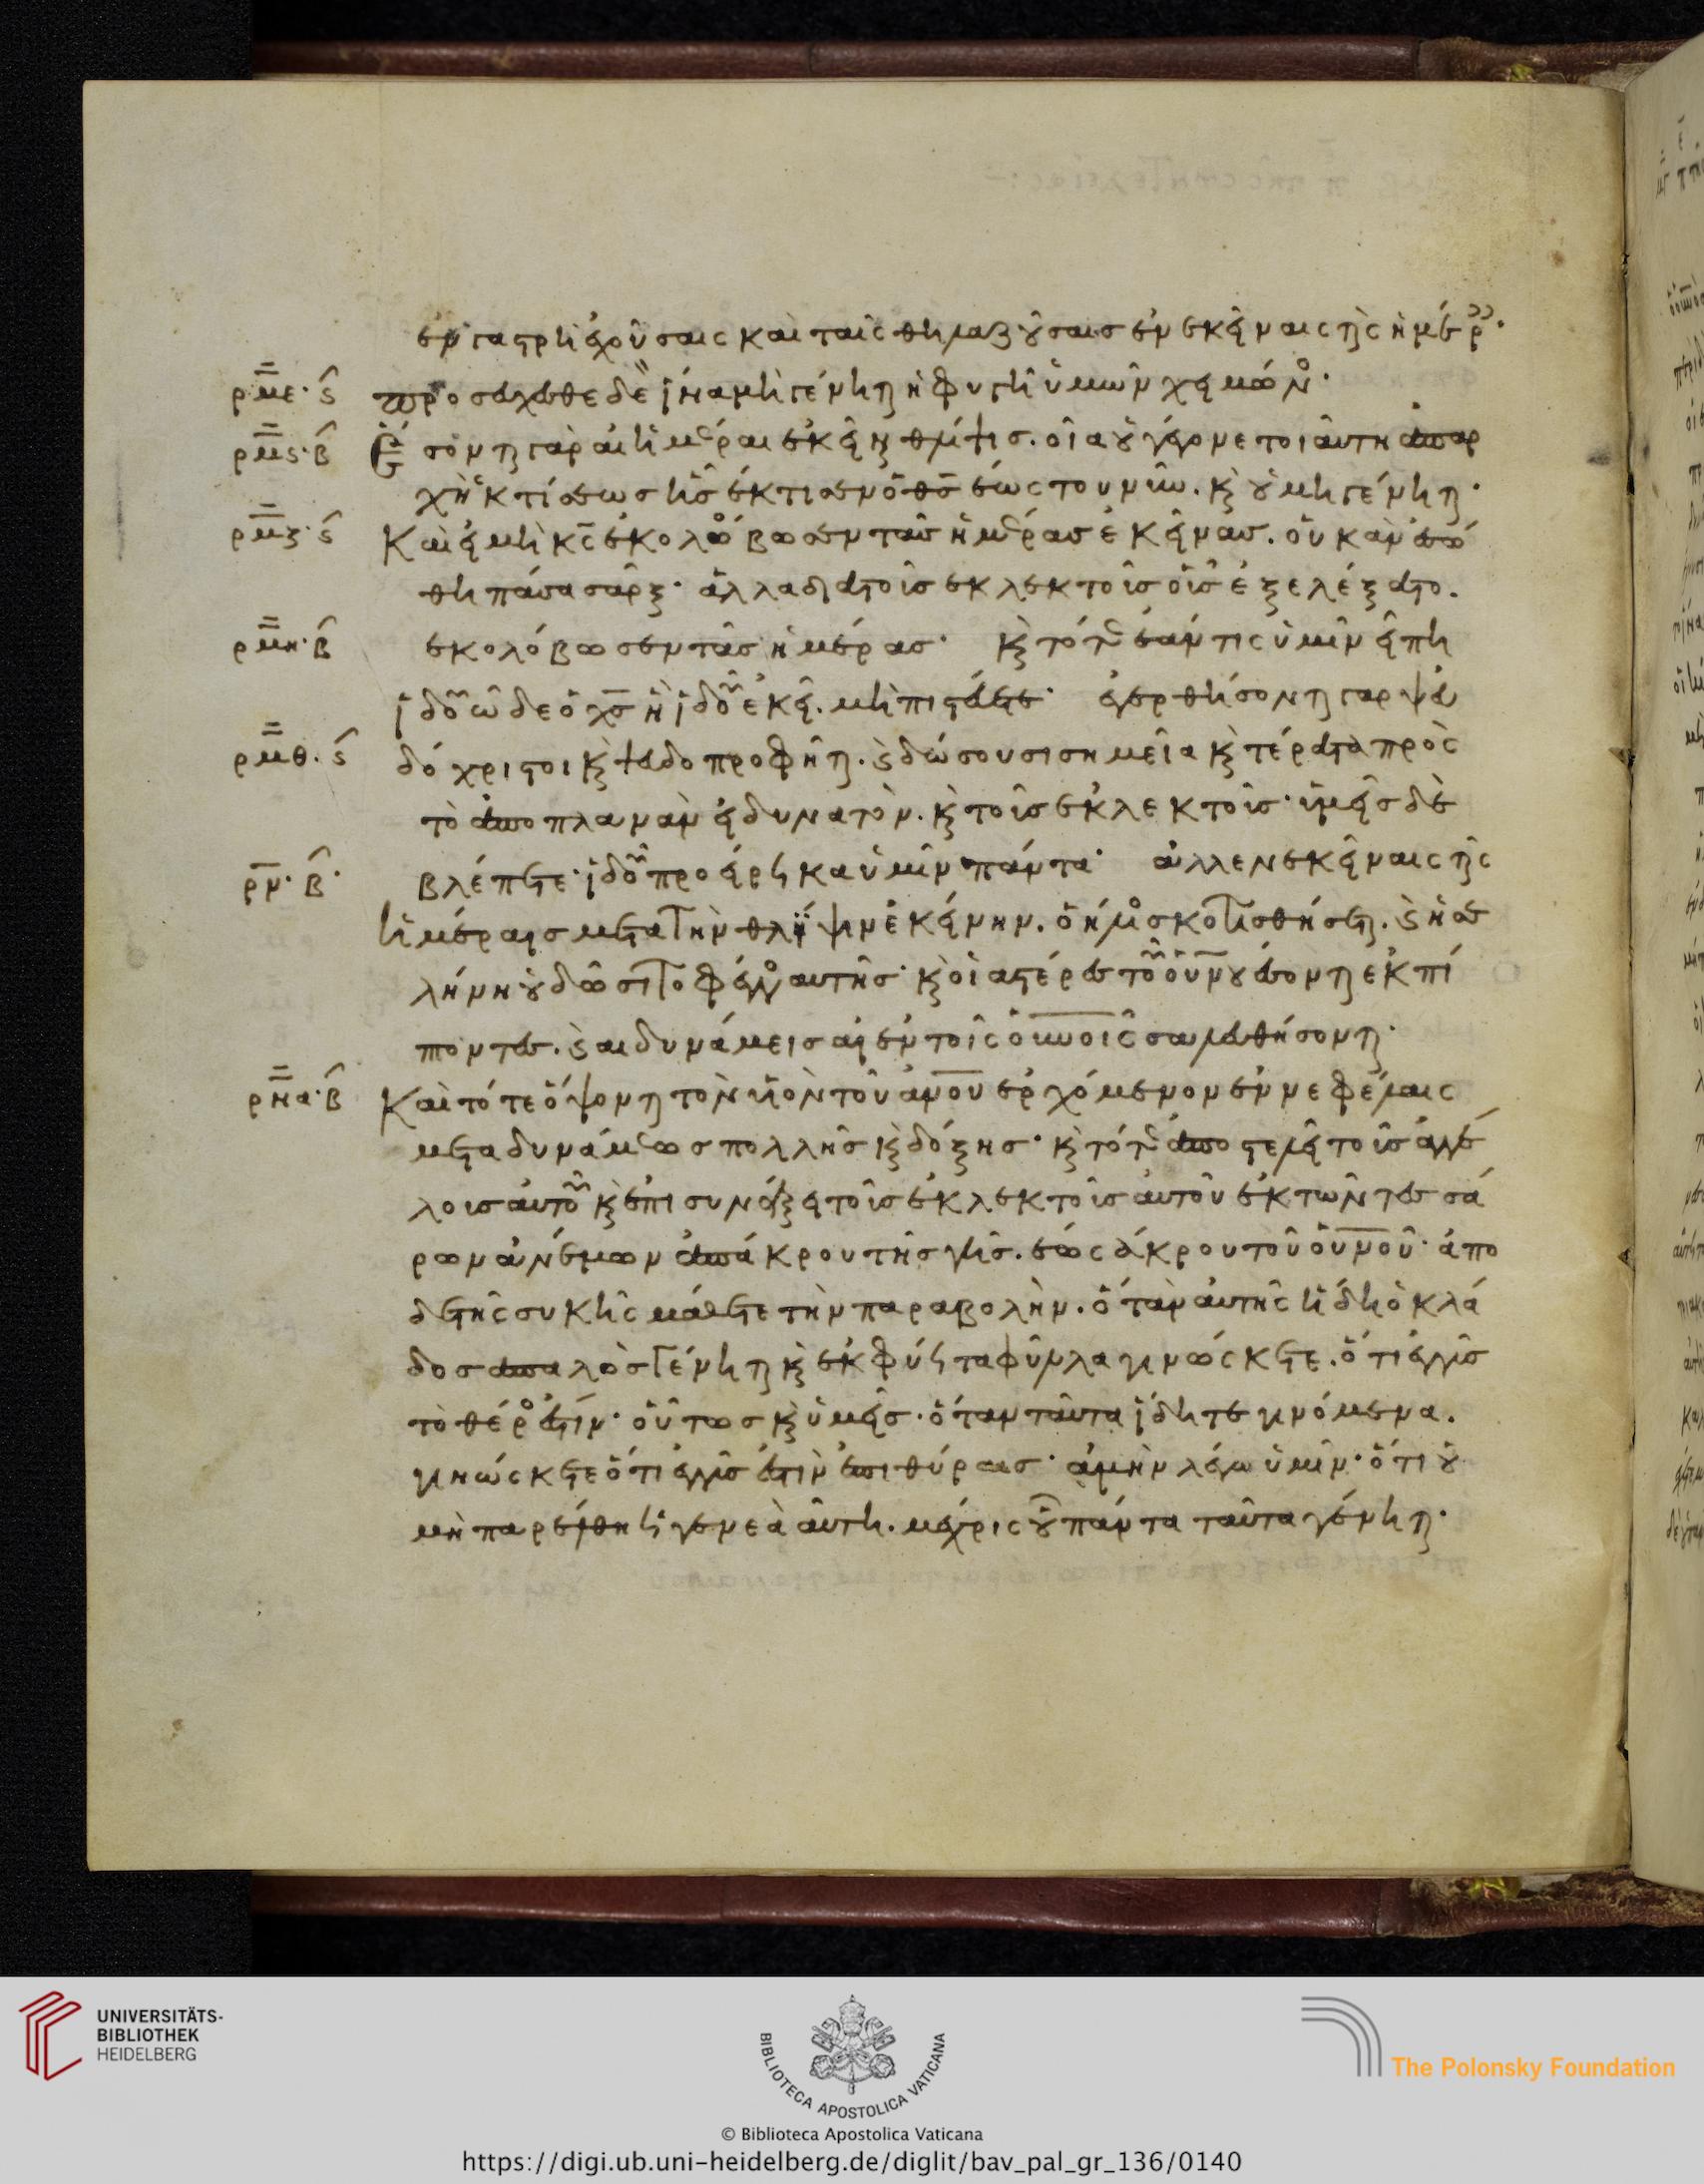 ἐν γαστρὶ ἐχούσαις καὶ ταῖς θηλαζούσαις ἐν ἐκείναις ταῖς ἡμέρ
ρμε · ϛ προσεύχεσθε δὲ ἵνα μὴ γένηται ἡ φυγὴ ὑμῶν χειμῶνος·
ρμϛ · β ἔσονται γὰρ αἱ ἡμέραι ἐκεῖναι θλίψις. οἵα οὐ γέγονε τοιαύτη ἀπαρ
χῆς κτίσεως ἧς ἔκτισεν ὁ θς ἕως τοῦ νῦν. κ οὐ μὴ γένηται·
ρμζ · ϛ Καὶ εἰ μὴ κς ἐκολόβωσεν τὰς ἡμέρας ἐκείνας. οὐκ ἂν ἐσώ
θη πάσα σάρξ· ἀλλὰ διὰ τοὺς ἐκλεκτοὺς οὓς ἐξελέξατο.
ρμη · β ἐκολόβωσεν τὰς ἡμέρας· κ τότε ἐάν τις ὑμῖν εἴπη
ἰδοὺ ὧδε ὁ χς ἢ ἰδοὺ ἐκεῖ. μὴ πιστεύετε· ἐγερθήσονται γὰρ ψευ
ρμθ · ϛ δόχριστοι κ ψευδοπροφῆται. κ δώσουσι σημεῖα κ τέρατα πρὸς
τὸ ἀποπλανᾶν εἰ δυνατὸν. κ τοὺς ἐκλεκτοὺς· ὑμεῖς δὲ
ρν · β · βλέπετε· ἰδοὺ προείρηκα ὑμῖν πάντα· ἀλλ εν ἐκείναις ταῖς
ἡμέραις μετὰ τὴν θλίψιν ἐκείνην. ὁ ἥλιος σκοτισθήσεται. κ ἡ σε
λήνη οὐ δώσει τὸ φέγγος αὐτῆς· κ οἱ ἀστέρες τοῦ οὐνου ἔσονται ἐκπί
πτοντες. κ αι δυνάμεις αἱ ἐν τοῖς οὐνοις σαλευθήσονται·
ρνα · β Καὶ τότε ὄψονται τὸν υἱὸν τοῦ ἀνου ἐρχόμενον ἐν νεφέλαις
μετὰ δυνάμεως πολλῆς κ δόξης· κ τότε ἀποστελεῖ τοὺς ἀγγέ
λους αὐτοῦ κ ἐπισυνάξει τοὺς ἐκλεκτοὺς αὐτοῦ ἐκ τῶν τεσσά
ρων ἀνέμων ἀπάκρου τῆς γῆς. ἕως ἄκρου τοῦ οὐνου· ἀπο
δὲ τῆς συκῆς μάθετε τὴν παραβολὴν. ὅταν αὐτῆς ἤδη ὁ κλά
δος ἁπαλὸς γένηται κ ἐκφύη τὰ φύλλα γινώσκετε. ὅτι ἐγγὺς
τὸ θέρος ἐστίν· οὕτως κ ὑμεῖς· ὅταν ταῦτα ἴδητε γινόμενα.
γινώσκετε ὅτι ἐγγύς ἐστὶν ἐπι θύραις· ἀμὴν λέγω ὑμῖν· ὅτι οὐ
μὴ παρέλθη ἡ γενεὰ αὕτη. μέχρις οὗ πάντα ταῦτα γένηται·
UNIVERSITÄTS-
BIBLIOTHEK
HEIDELBERG
BIBLIOTECA APOSTOLICA VATICANA
The Polonsky Foundation
© Biblioteca Apostolica Vaticana
https://digi.ub.uni-heidelberg.de/diglit/bav_pal_gr_136/0140